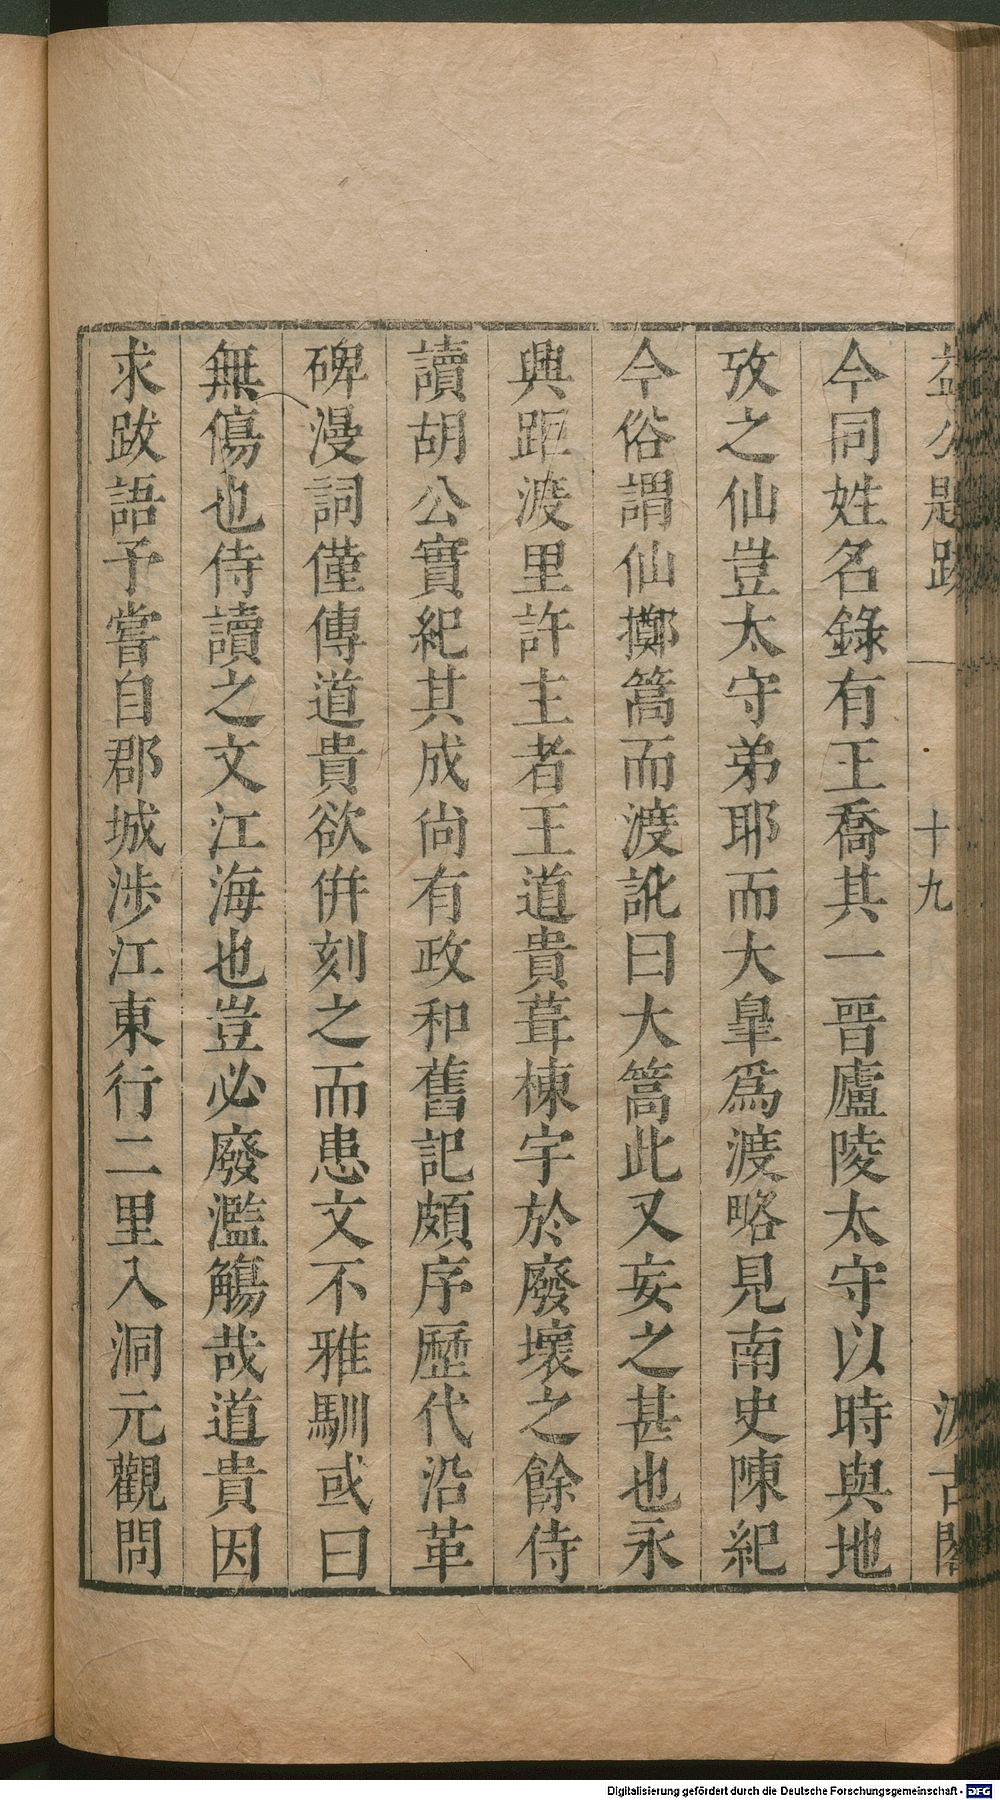 益公題跋 十九 汲古閣
今同姓名錄有王喬其一晉廬陵太守以時與地
攷之仙豈太守弟耶而大臯爲渡略見南史陳紀
今俗謂仙擲篙而渡訛曰大篙此又妄之甚也永
興距渡里許主者王道貴葺棟宇於廢壞之餘侍
讀胡公實紀其成尙有政和舊記頗序歷代沿革
碑漫詞僅傳道貴欲倂刻之而患文不雅馴或曰
無傷也侍讀之文江海也豈必廢濫觴哉道貴因
求跋語予嘗自郡城涉江東行二里入洞元觀問
Digitalisierung gefördert durch die Deutsche Forschungsgemeinschaft - DFG